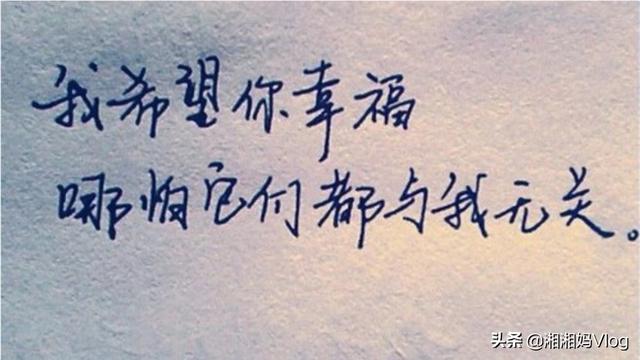 我希望你幸福
哪怕它们都与我无关。
头条 @湘湘妈Vlog